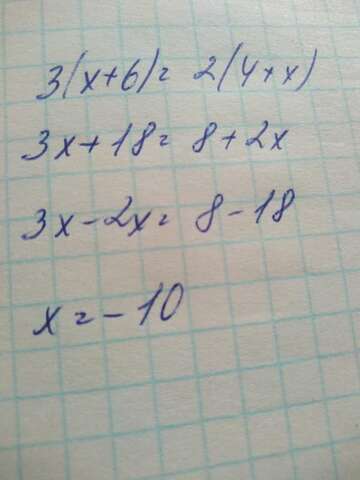 3(x+6)= 2(4+x)
3x+18= 8+2x
3x-2x= 8-18
x=-10